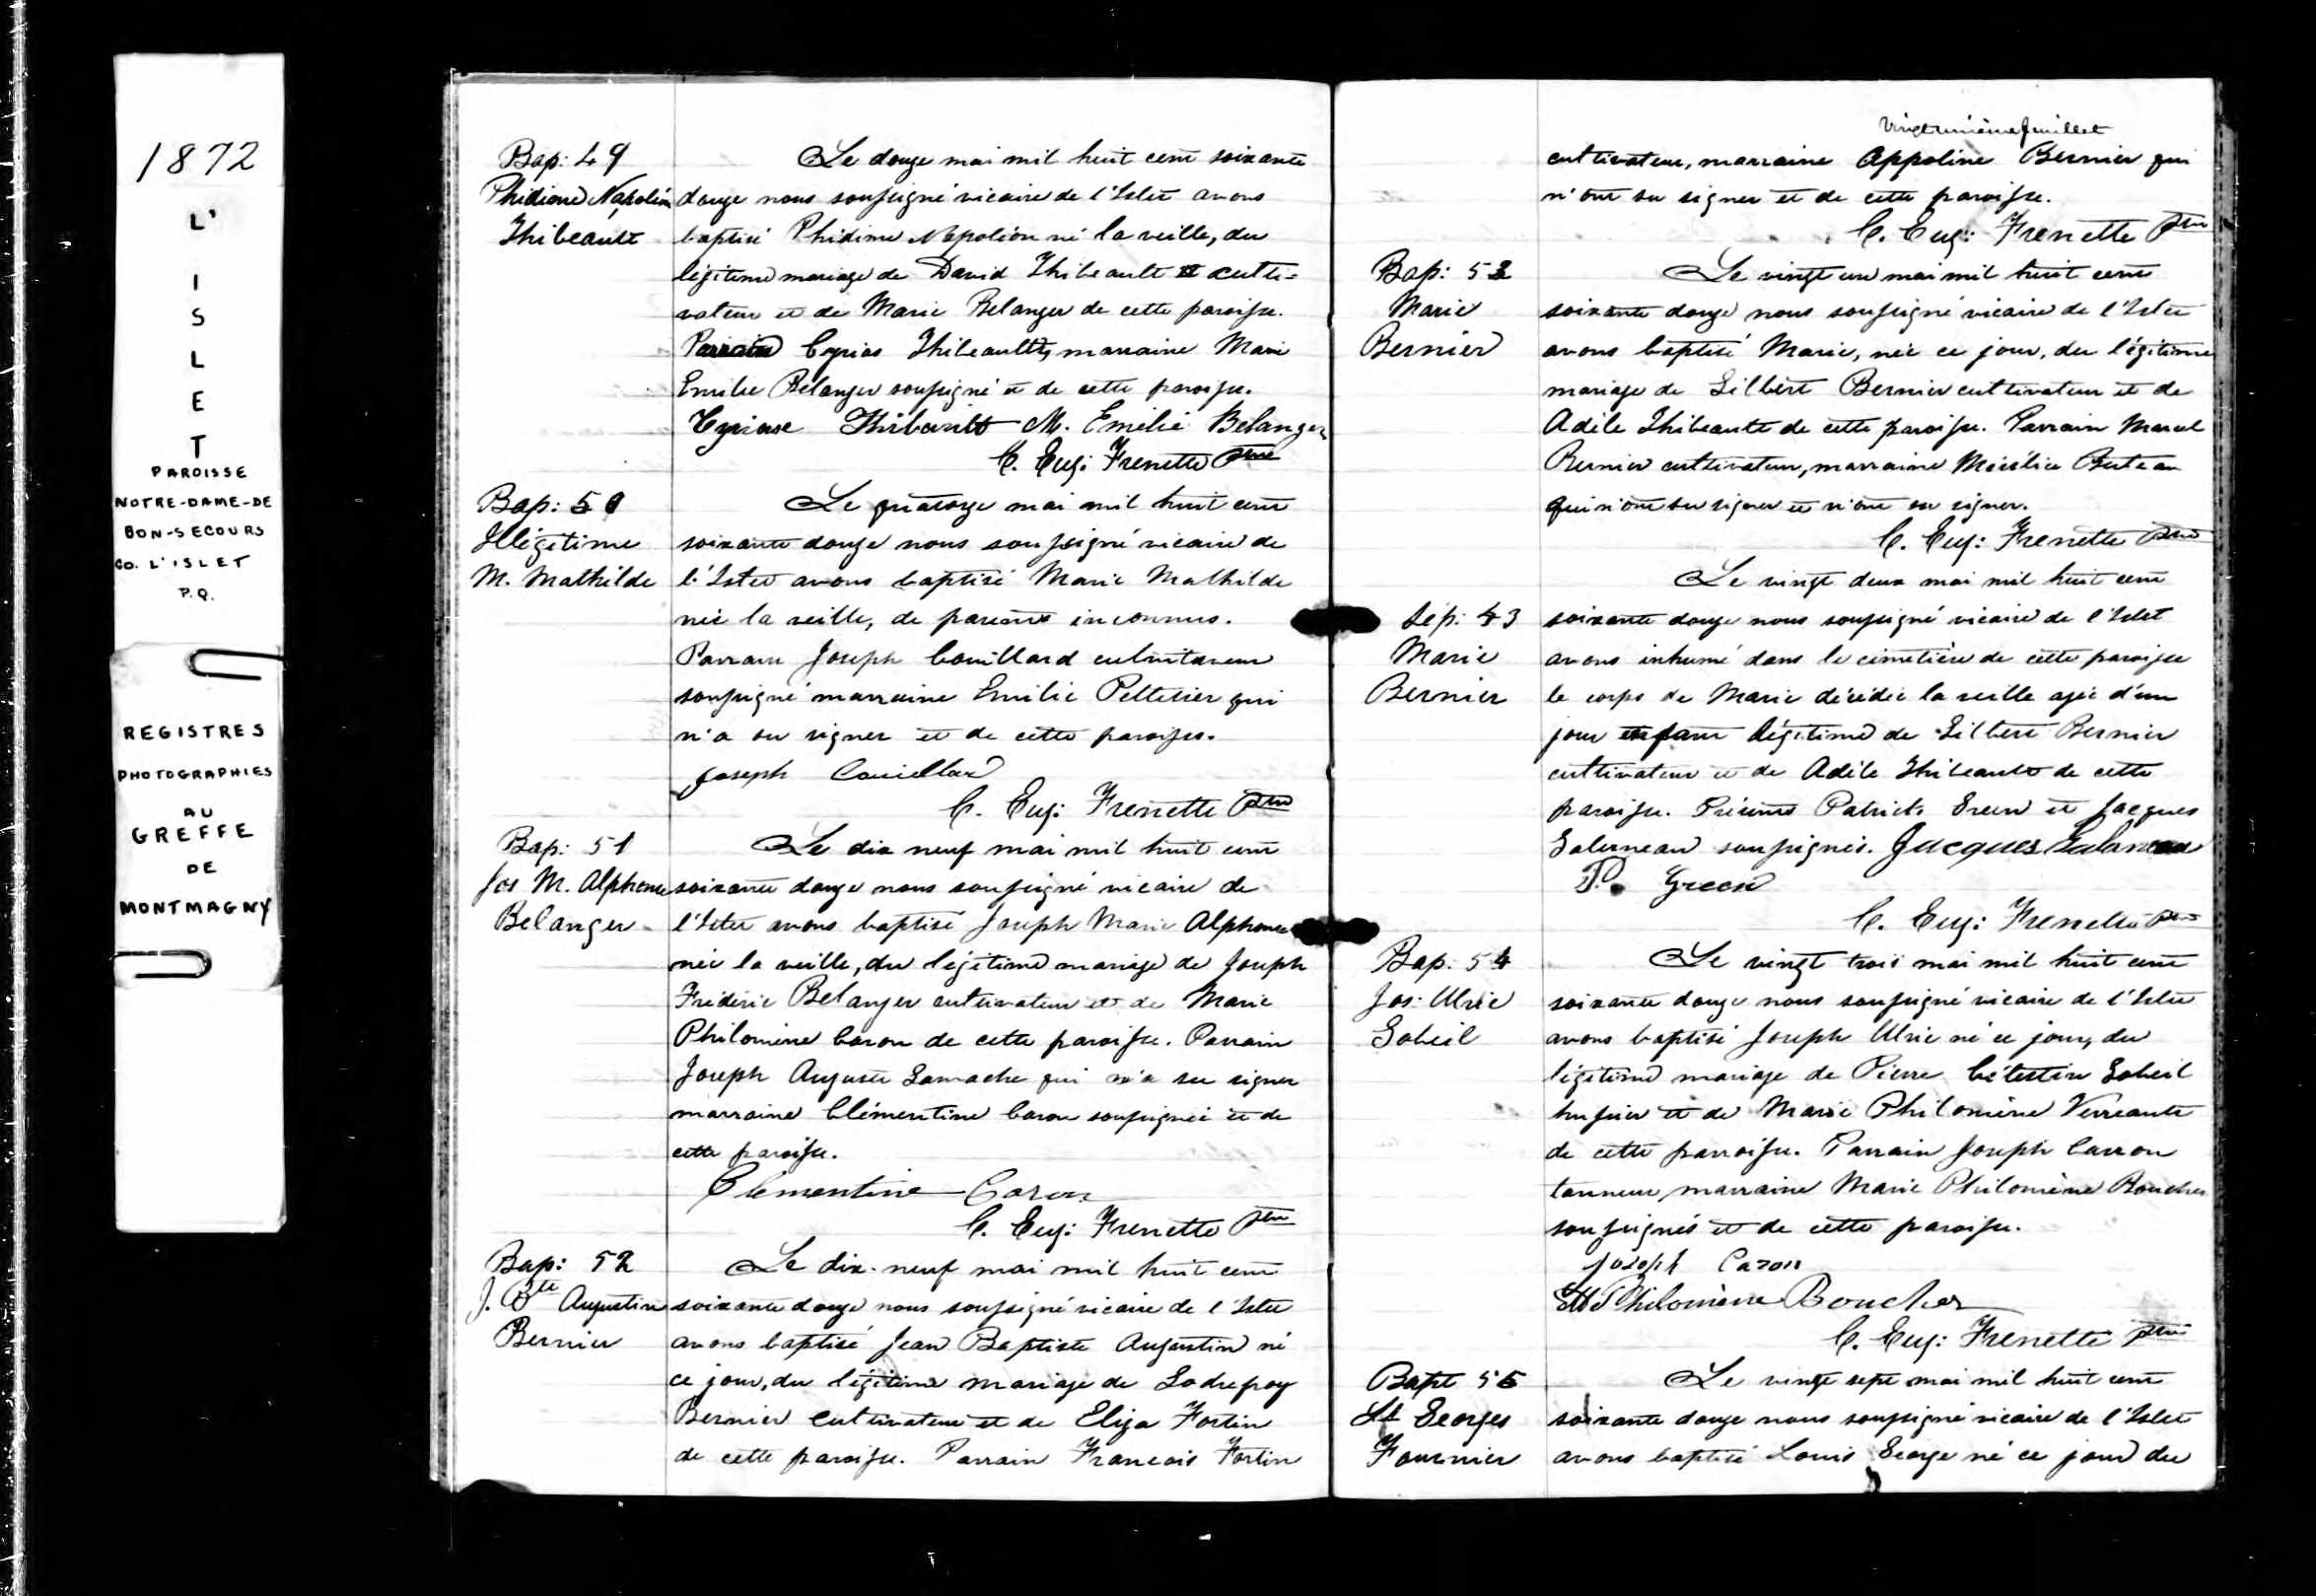 1872
L'
I
S
L
E
T
PAROISSE
NOTRE-DAME-DE
BON-SECOURS
CO. L'ISLET
P.Q.
REGISTRES
PHOTOGRAPHIES
AU
GREFFE
DE
MONTMAGNY
Bap: 49
Phidime Napoléon
Thibeault
Le douze mai mil huit cent soixante
douze nous soussigné vicaire de l'Islet avons
baptisé Phidime Napoléon né la veille, du
légitime mariage de David Thibeault culti-
vateur et de Marie Belanger de cette paroisse.
Parrain Cyrias Thibeault, marraine Marie
Emilie Belanger soussigné et de cette paroisse.
Cyriase Thibault M. Emélie Belanger
C. Eug: Frenette Ptre
Bap: 50
Illégitime
M. Mathilde
Le quatorze mai mil huit cent
soixante douze nous soussigné vicaire de
l'Islet avons baptisé Marie Mathilde
née la veille, de parents inconnus.
Parrain Joseph Couillard
soussigné marraine Emilie Pelletier qui
n'a su signer et de cette paroisse.
Joseph Couillard
C. Eug: Frenette Ptre
Bap: 51
Jos M. Alphonse
Belanger
Le dix neuf mai mil huit cent
soixante douze nous soussigné vicaire de
l'Islet avons baptisé Joseph Marie Alphonse
née la veille, du légitime mariage de Joseph
Fréderic Belanger cultivateur et de Marie
Philomène Caron de cette paroisse. Parrain
Joseph Auguste Gamache qui n'a su signer
marraine Clémentine Caron soussignée et de
cette paroisse.
Clementine Caron
C. Eug: Frenette Ptre
Bap: 52
J. Bte Augustin
Bernier
Le dix-neuf mai mil huit cent
soixante douze nous soussigné vicaire de l'Islet
avons baptisé Jean Baptiste Augustin né
ce jour, du légitime mariage de Godrefroy
Bernier cultivateur et de Eliza Fortin
de cette paroisse. Parrain Francois Fortin
Vingt unième feuillet
cultivateur, marraine Appoline Bernier qui
n'ont su signer et de cette paroisse.
C. Eug: Frenette Ptre
Bap: 53
Marie
Bernier
Le vingt un mai mil huit cent
soixante douze nous soussigné vicaire de l'Islet
avons baptisé Marie, née ce jour, du légitime
mariage de Gilbert Bernier cultivateur et de
Adèle Thibeault de cette paroisse. Parrain Marcel
Bernier cultivateur, marraine
qui n'ont su signer et n'ont su signer.
C. Eug: Frenette Ptre
Sép: 43
Marie
Bernier
Le vingt deux mai mil huit cent
soixante douze nous soussigné vicaire de l'Islet
avons inhumé dans le cimetière de cette paroisse
le corps de Marie décédée la veille agée d'un
jour enfant légitime de Gilbert Bernier
cultivateur et de Adèle Thibeault de cette
paroisse. Présents Patrick Green et Jacques
Galerneau soussignés. Jacques Galarneau
P. Green
C. Eug: Frenette Ptre
Bap: 54
Jos: Ulric
Gobeil
Le vingt trois mai mil huit cent
soixante douze nous soussigné vicaire de l'Islet
avons baptisé Joseph Ulric né ce jour, du
légitime mariage de Pierre Célestin Gobeil
huissier et de Marie Philomène Verreault
de cette parroisse. Parrain Joseph Carron
tanneur, marraine Marie Philomène Boucher
soussignés et de cette paroisse.
Joseph Caron
M Philomène Boucher
C. Eug: Frenette Ptre
Bapt 55
Ls Georges
Fournier
Le vingt sept mai mil huit cent
soixante douze nous soussigné vicaire de l'Islet
avons baptisé Louis George né ce jour du